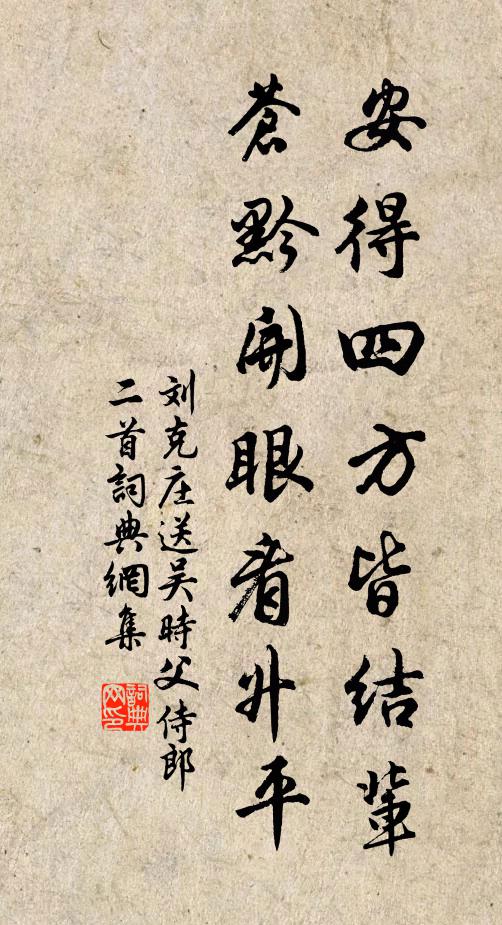 安得四方皆结輩
蒼黔開眼看升平
刘克庄送吴時父侍郎
二首詞典網集
詞典网印